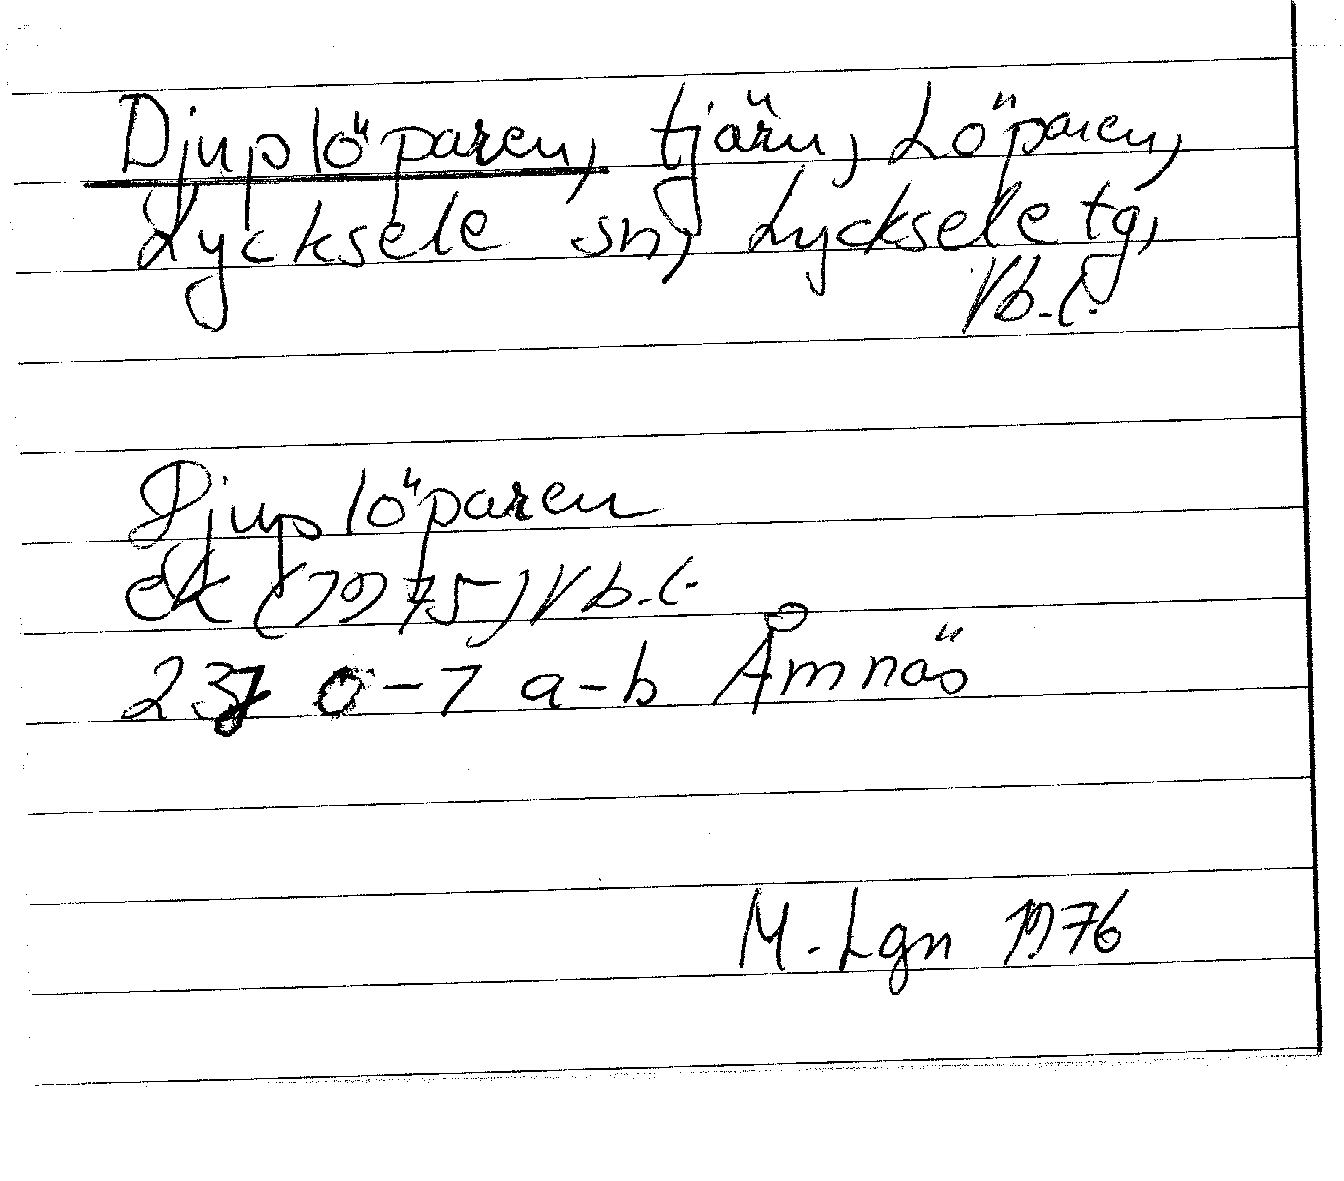 Djuplöparen, tjärn, Löparen,
Lycksele sn, Lycksele tg,
Vb.l.
Djuplöparen
ek (1975) Vb.l.
23J 0-1 a-b Åmnäs
M. Lgn 1976